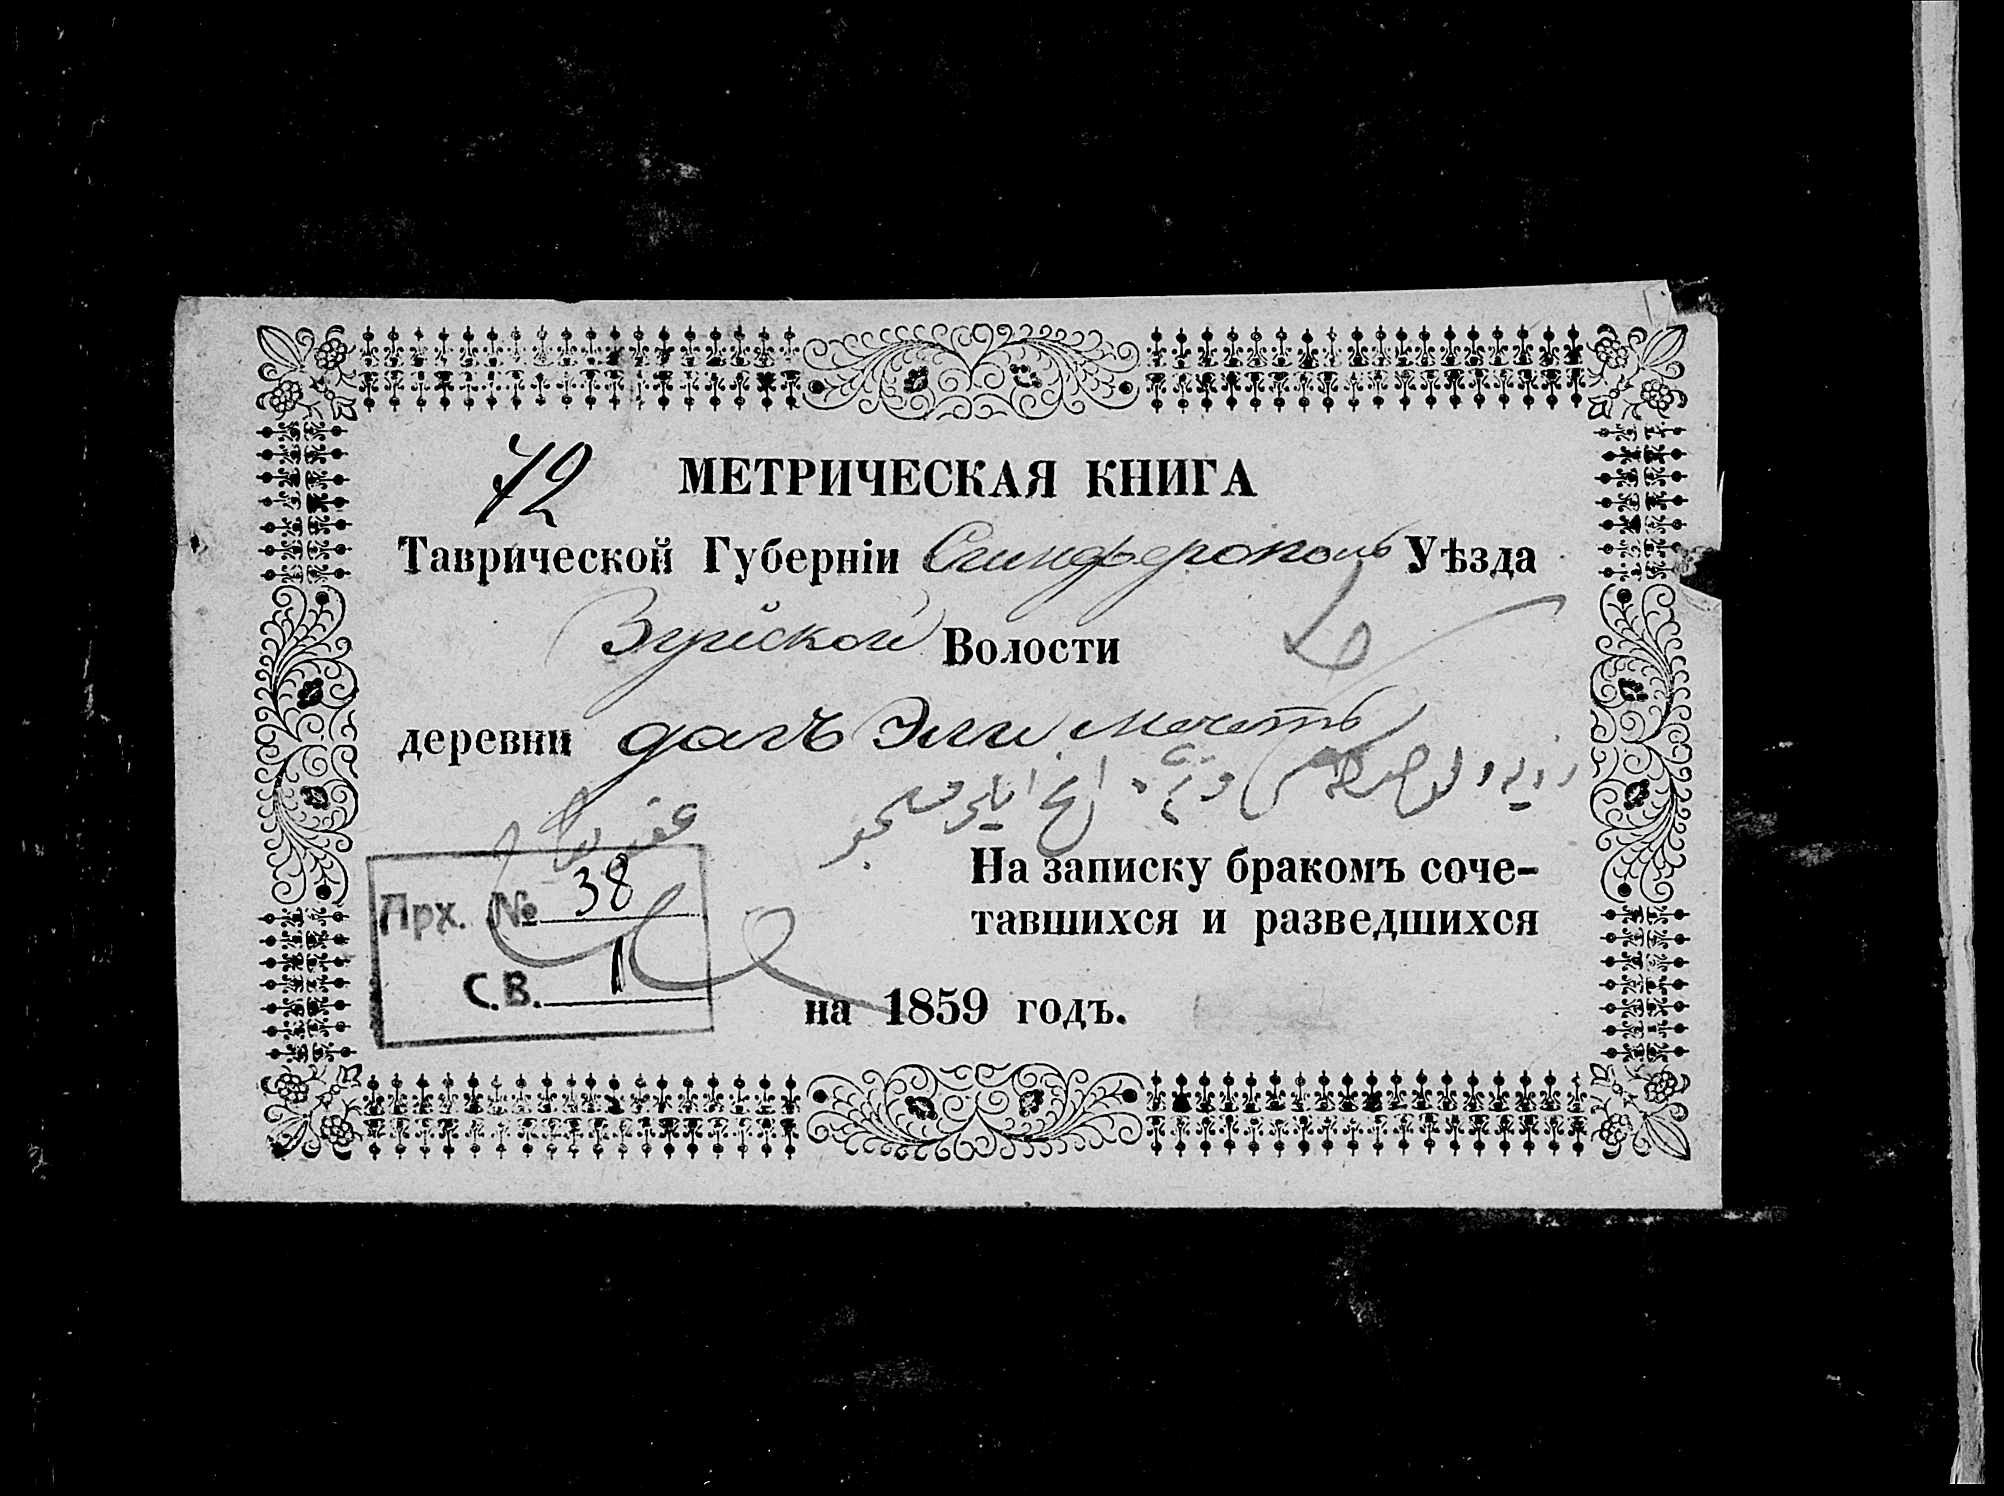 42 МЕТРИЧЕСКАЯ КНИГА
Таврической Губерніи Симферополь Уѣзда
Зуйской Волости
деревни Эли Мечеть
На записку бракомъ соче-
тавшихся и разведшихся
Прх. № 38
С.В. 1
на 1859 годъ.